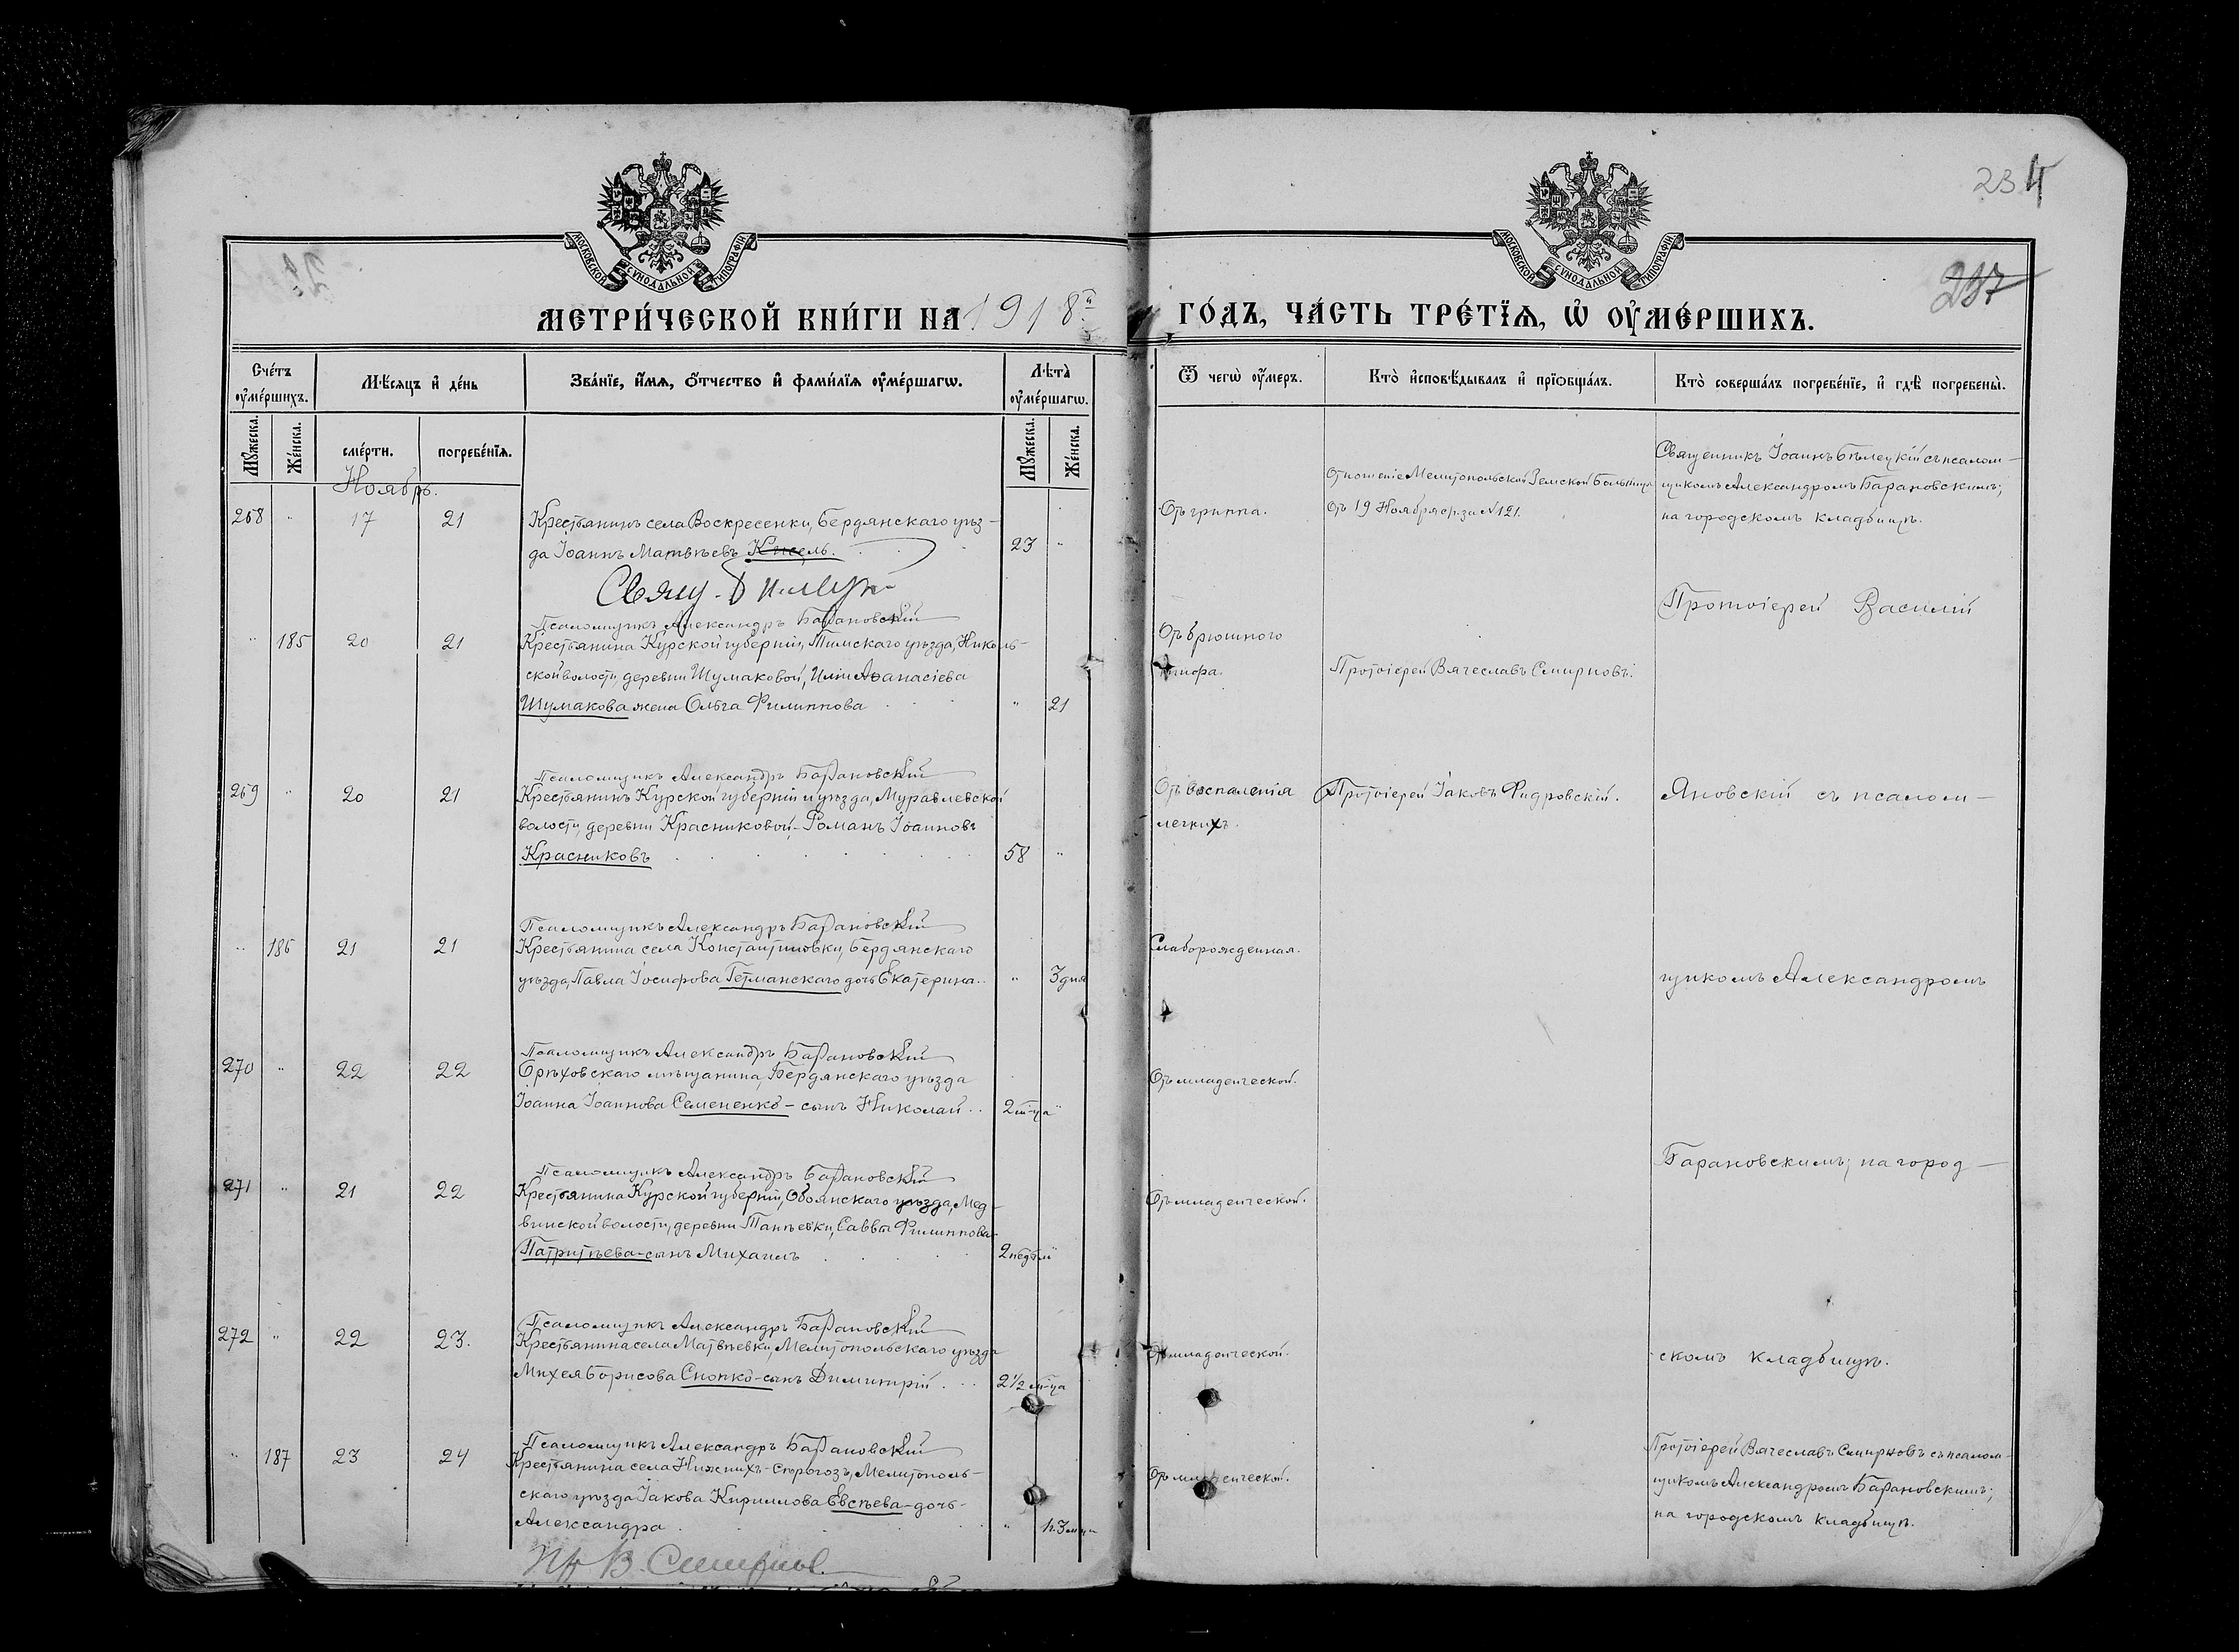 234
237
МОСКОВСКОЙ СѴНОДАЛЬНОЙ ТИПОГРАФІИ
МОСКОВСКОЙ СѴНОДАЛЬНОЙ ТИПОГРАФІИ
МЕТРИ́ЧЕСКОЙ КНИ́ГИ НА 1918й ГО́ДЪ, ЧА́СТЬ ТРЕ́ТЇѦ, Ѽ ОУ҆МЕ́РШИХЪ.
Сче́тъ оу҆ме́ршихъ.
Мѣ́сяцъ и҆ де́нь
Зва́нїе, и҆́мя, ѻ҆́тчество и҆ фами́лїя оу҆ме́ршагѡ.
Лѣ́та оу҆ме́ршагѡ.
Ѿ чегѡ̀ оу҆́меръ.
Кто̀ и҆сповѣ́дывалъ и҆ прїѡбща́лъ.
Кто̀ соверша́лъ погребе́нїе, и҆ гдѣ̀ погребены̀.
Мꙋ́жеска. Же́нска. сме́рти. погребе́нїя. Мꙋ́жеска. Же́нска.
Ноябрь.
268 " 17 21 Крестьянинъ села Воскресенки, Бердянскаго уѣз-
да Іоаннъ Матвѣевъ Кисель. 23 "
Отъ гриппа.
Отношеніе Мелитопольской Земской Больницы
отъ 19 Ноября с.г. за № 121.
Священникъ Іоаннъ Бѣлецкій съ псалом-
щикомъ Александромъ Барановскимъ;
на городскомъ кладбищѣ.
Свящ.
Псаломщикъ Александръ Барановскій
" 185 20 21 Крестьянина Курской губерніи, Тимскаго уѣзда, Николь-
ской волости, деревни Шумаковой, Иліи Аѳанасіева
Шумакова жена Ольга Филиппова " 21
Отъ брюшного
тифа.
Протоіерей Вячеславъ Смирновъ.
Протоіерей Василій
Псаломщикъ Александръ Барановскій
269 " 20 21 Крестьянинъ Курской губерніи и уѣзда, Муравлевской
волости, деревни Красниковой, Романъ Іоанновъ
Красниковъ 58 "
Отъ воспаленія
легкихъ.
Протоіерей Іаковъ Фидровскій.
Яновскій съ псалом-
Псаломщикъ Александръ Барановскій
" 186 21 21 Крестьянина села Константиновки, Бердянскаго
уѣзда, Павла Іосифова Гетманскаго дочь Екатерина. " 3 дня
Слаборожденная.
щикомъ Александромъ
Псаломщикъ Александръ Барановскій
270 " 22 22 Орѣховскаго мѣщанина, Бердянскаго уѣзда
Іоанна Іоаннова Семененко - сынъ Николай 2 м-ца "
Отъ младенческой.
Барановскимъ; на город-
Псаломщикъ Александръ Барановскій
271 " 21 22 Крестьянина Курской губерніи, Обоянскаго уѣзда, Мед-
винской волости, деревни Танѣевки, Саввы Филиппова
Патритѣева - сынъ Михаилъ 2 недѣли "
Отъ младенческой.
Псаломщикъ Александръ Барановскій
272 " 22 23. Крестьянина села Матвѣевки, Мелитопольскаго уѣзда
Михея Борисова Снопко - сынъ Димитрій 2 1/2 м-ца
Отъ младенческой.
скомъ кладбищѣ.
Псаломщикъ Александръ Барановскій
" 187 23 24 Крестьянина села Нижнихъ-Сѣрогозъ, Мелитополь-
скаго уѣзда Іакова Кириллова Евсѣева - дочь
Александра " 3 м-ца
Отъ младенческой.
Протоіерей Вячеславъ Смирновъ съ псалом-
щикомъ Александромъ Барановскимъ;
на городскомъ кладбищѣ.
В. Смирновъ